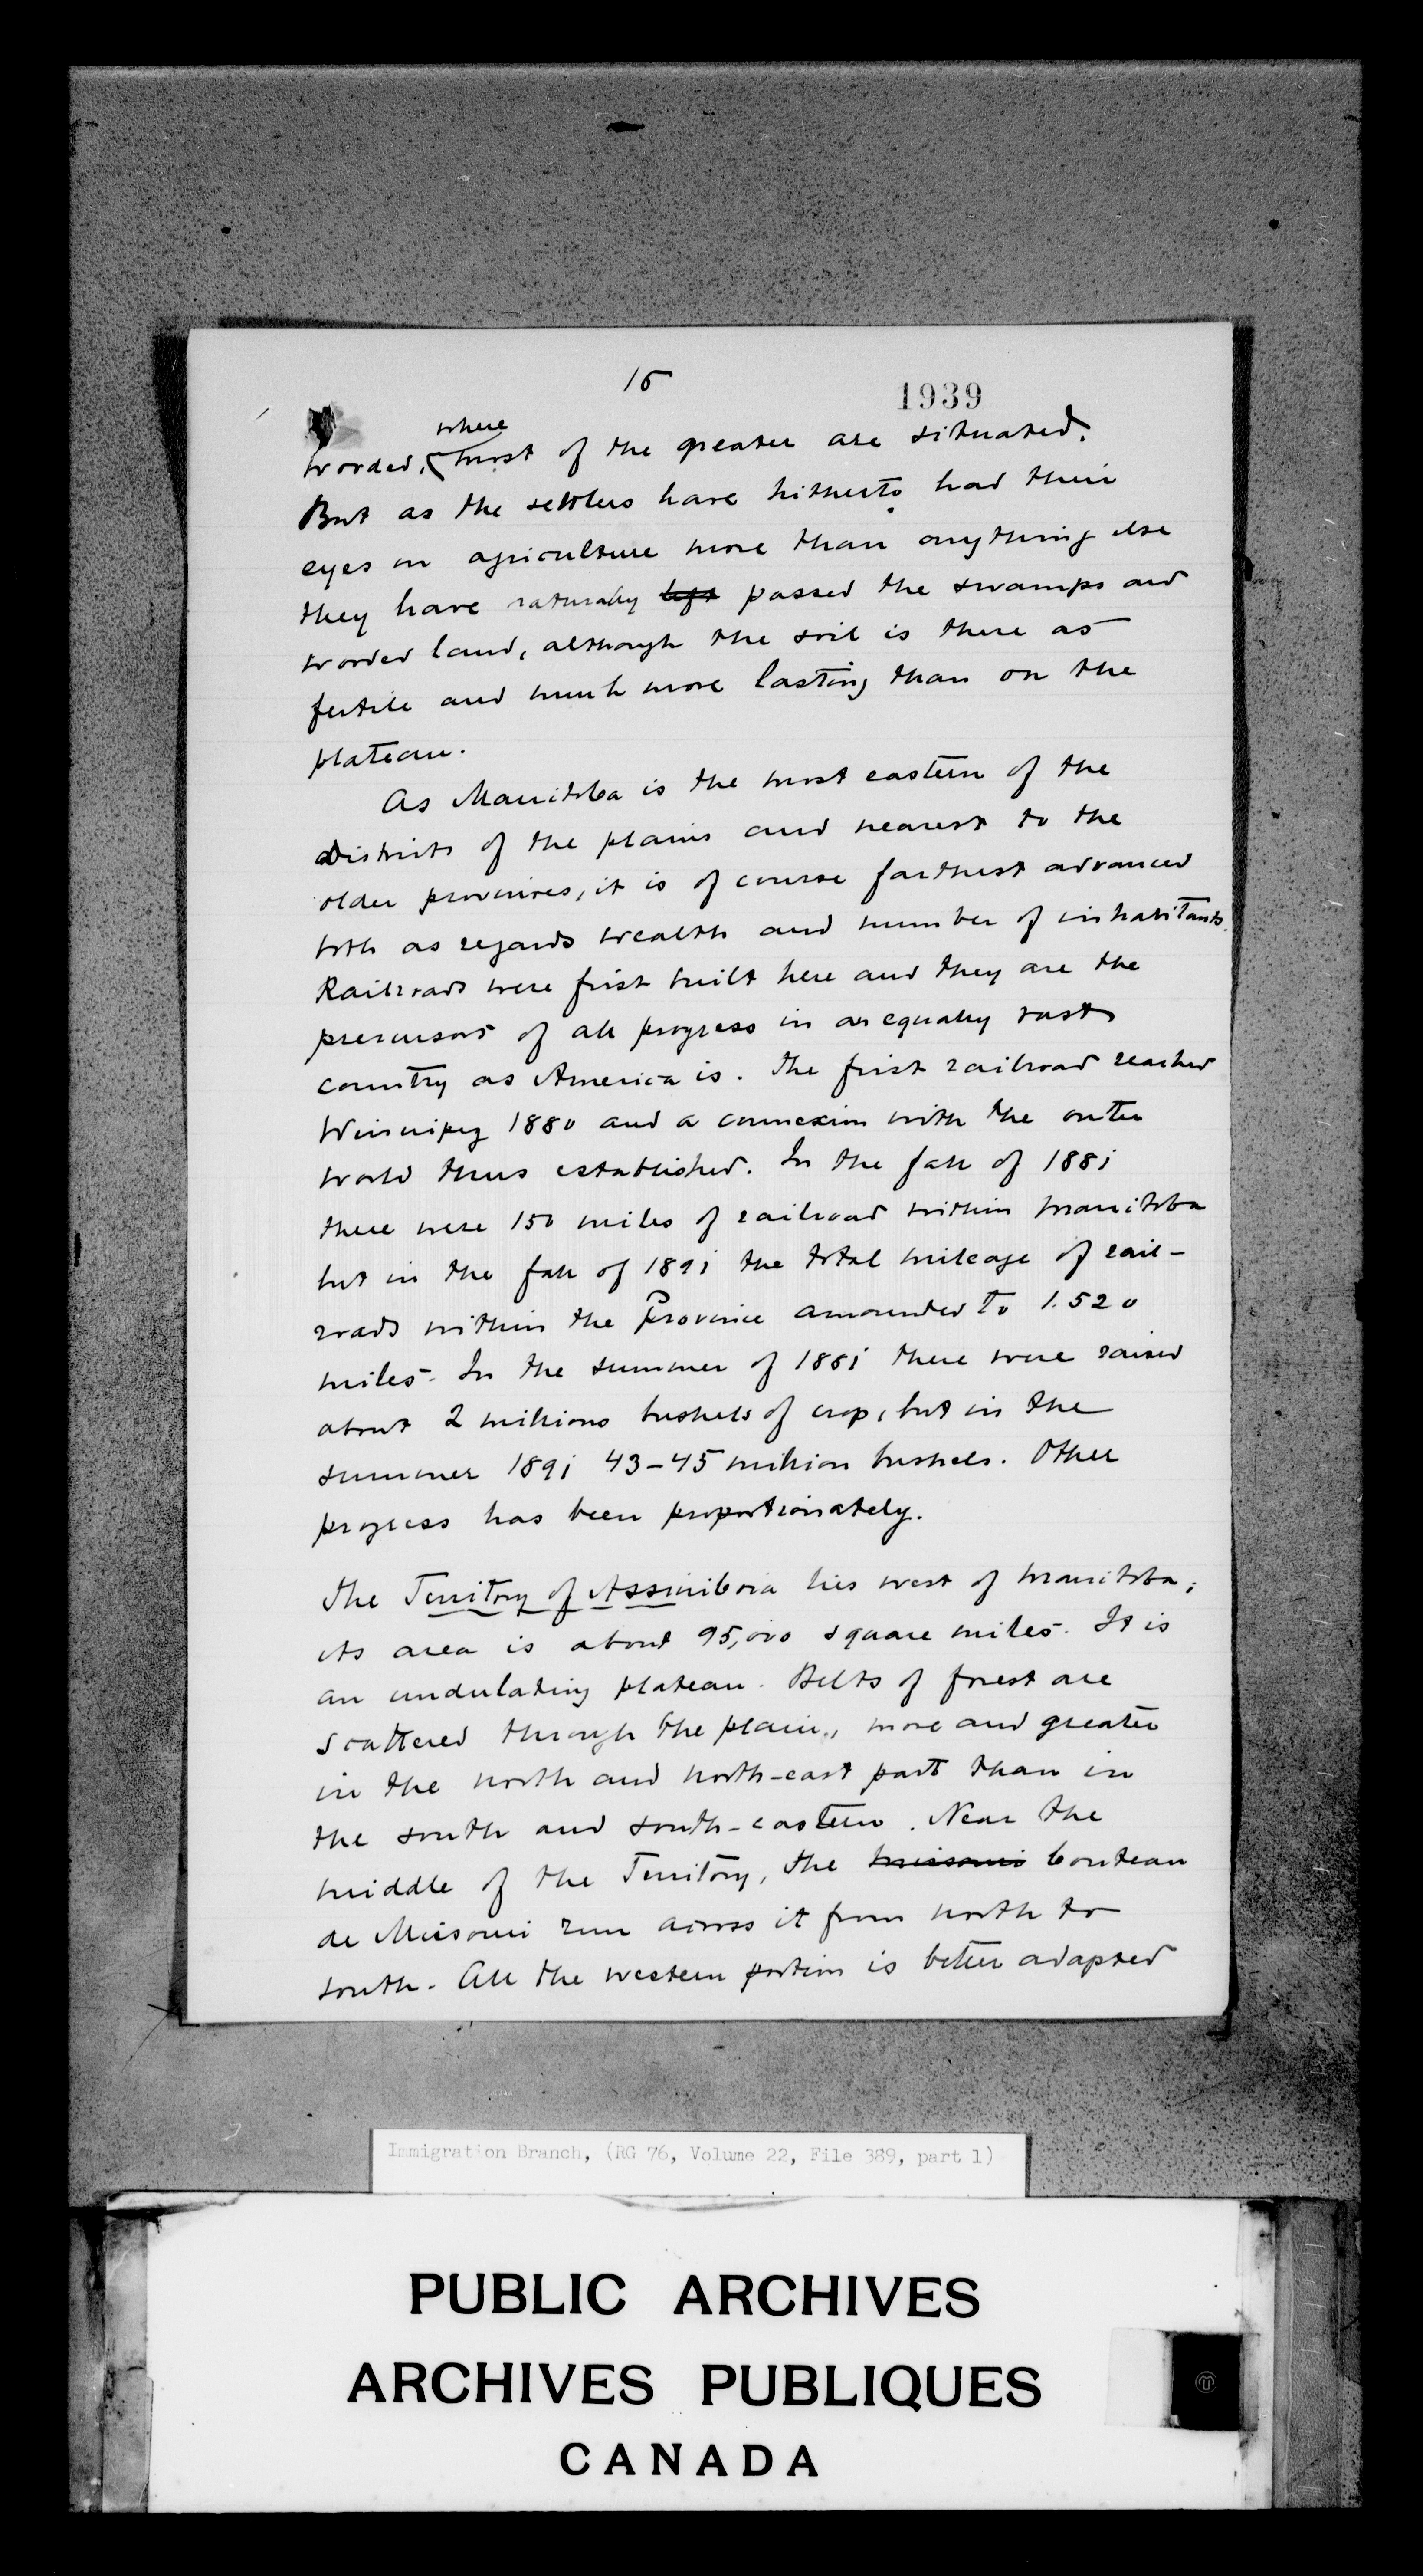 15
1939
where
wooded, most of the greater are situated.
But as the settlers have hitherto had their
eyes on agriculture more than anything else
they have naturally left passed the swamps and
wooded land, although the soil is there as
fertile and much more lasting than on the
plateau.
As Manitoba is the most eastern of the
districts of the plains and nearest to the
older provinces, it is of course farthest advanced
both as regards wealth and number of inhabitants.
Railroads were first built here and they are the
precursors of all progress in an equally vast
country as America is. The first railroad reached
Winnipeg 1880 and a connexion with the outer
world thus established. In the fall of 1881
there were 150 miles of railroad within Manitoba
but in the fall of 1891 the total mileage of rail-
roads within the Province amounted to 1.520
miles. In the summer of 1881 there were raised
about 2 millions bushels of crop, but in the
summer 1891 43-45 million bushels. Other
progress has been proportionately.
The Territory of Assiniboia lies west of Manitoba;
its area is about 95,000 square miles. It is
an undulating plateau. Belts of forest are
scattered through the plain, more and greater
in the north and north-east part than in
the south and south-eastern. Near the
middle of the Territory, the Missouri Couteau
de Missouri run across it from north to
south. All the western portion is better adapted
Immigration Branch, (RG 76, Volume 22, File 389, part 1)
PUBLIC ARCHIVES
ARCHIVES PUBLIQUES
CANADA